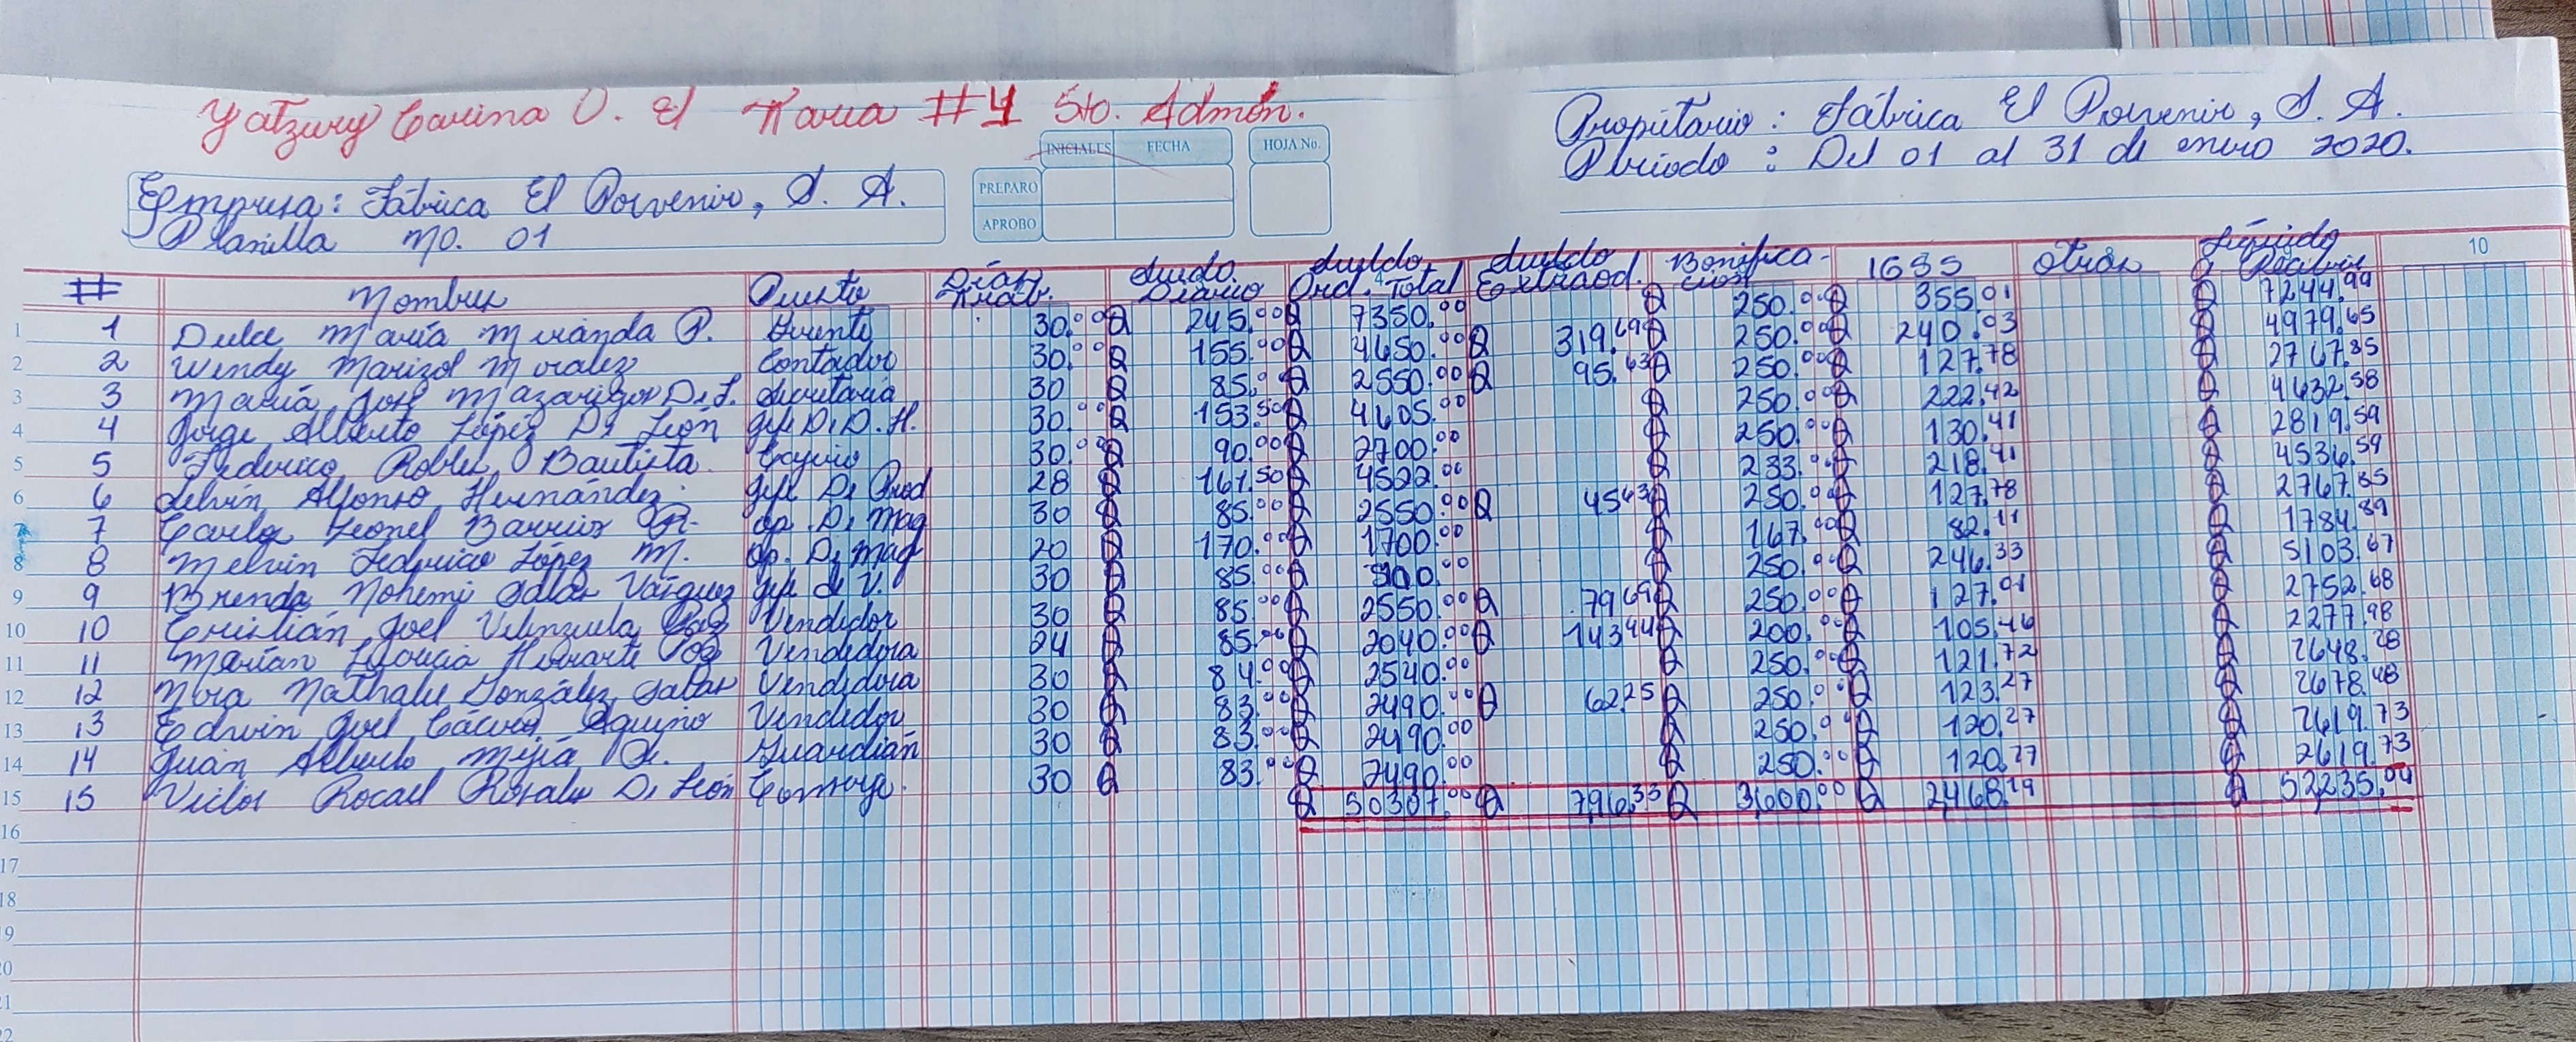 Yatzury Carina O. El Tarea #1 5to. Admón.
Propietario: Fábrica El Porvenir, S. A.
Período : Del 01 al 31 de enero 2020.
INICIALES FECHA HOJA No.
PREPARO
APROBO
Empresa: Fábrica El Porvenir, S. A.
Planilla No. 01
# Nombres Puesto Días Trab. Sueldo Diario Sueldo Ord. Total Sueldo Extraod. Bonificación IGSS Otros Líquido a Recibir 10
1 Dulce María Miranda P. Gerente 30.00 Q 245.00 Q 7350.00 Q 250.00 Q 355.01 Q 7244.99
2 Wendy Marizol Morales Contador 30.00 Q 155.00 Q 4650.00 Q 319.69 Q 250.00 Q 240.03 Q 4979.65
3 María José Mazariegos D. L. Secretaria 30 Q 85.00 Q 2550.00 Q 95.63 Q 250.00 Q 127.78 Q 2767.85
4 Jorge Alberto López De León Jefe D. D. H. 30.00 Q 153.50 Q 4605.00 Q 250.00 Q 222.42 Q 4632.58
5 Federico Robles Bautista Cajero 30.00 Q 90.00 Q 2700.00 Q 250.00 Q 130.41 Q 2819.59
6 Selvin Alfonso Hernández Jefe De Prod 28 Q 161.50 Q 4522.00 Q 233.00 Q 218.41 Q 4536.59
7 Carlos Leonel Barrios R. op. De Maq 30 Q 85.00 Q 2550.00 Q 45.63 Q 250.00 Q 127.78 Q 2767.85
8 Melvin Federico López M. op. De Maq 20 Q 170.00 Q 1700.00 Q 167.00 Q 82.11 Q 1784.89
9 Brenda Nohemi Salas Vásquez Jefe de V. 30 Q 85.00 Q Q 250.00 Q 246.33 Q 5103.67
10 Cristián Joel Velenzuela Paz Vendedor 30 Q 85.00 Q 2550.00 Q 79.69 Q 250.00 Q 127.01 Q 2752.68
11 Marían Herrarte Vendedora 24 Q 85.00 Q 2040.00 Q 143.44 Q 200.00 Q 105.46 Q 2277.98
12 Nathalie González Salas Vendedora 30 Q 84.00 Q 2540.00 Q 250.00 Q 121.72 Q 2648.28
13 Edwin Joel Cáceres Aquino Vendedor 30 Q 83.00 Q 2490.00 Q 62.25 Q 250.00 Q 123.27 Q 2678.98
14 Juán Alberto Mejía R. Guardián 30 Q 83.00 Q 2490.00 Q 250.00 Q 120.27 Q 2619.73
15 Victor Rocael Rosales De León Conserje. 30 Q 83.00 Q 2490.00 Q 250.00 Q 120.27 Q 2619.73
Q 50307.00 Q 796.33 Q 3,600.00 Q 2468.29 Q 52235.04
16
17
18
19
20
21
22